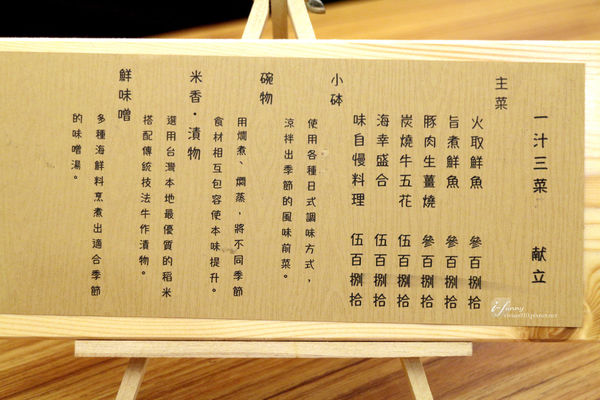 一汁三菜 献立
主菜
火取鮮魚 參百捌拾
旨煮鮮魚 參百捌拾
豚肉生薑燒 參百捌拾
炭燒牛五花 伍百捌拾
海幸盛合 伍百捌拾
味自慢料理 伍百捌拾
小砵
使用各種日式調味方式，
涼拌出季節的風味前菜。
碗物
用燗煮、燜蒸，將不同季節
食材相互包容使本味提升。
米香・漬物
選用台灣本地最優質的稻米
搭配傳統技法牛作漬物。
鮮味噌
多種海鮮料烹煮出適合季節
的味噌湯。
i-funny